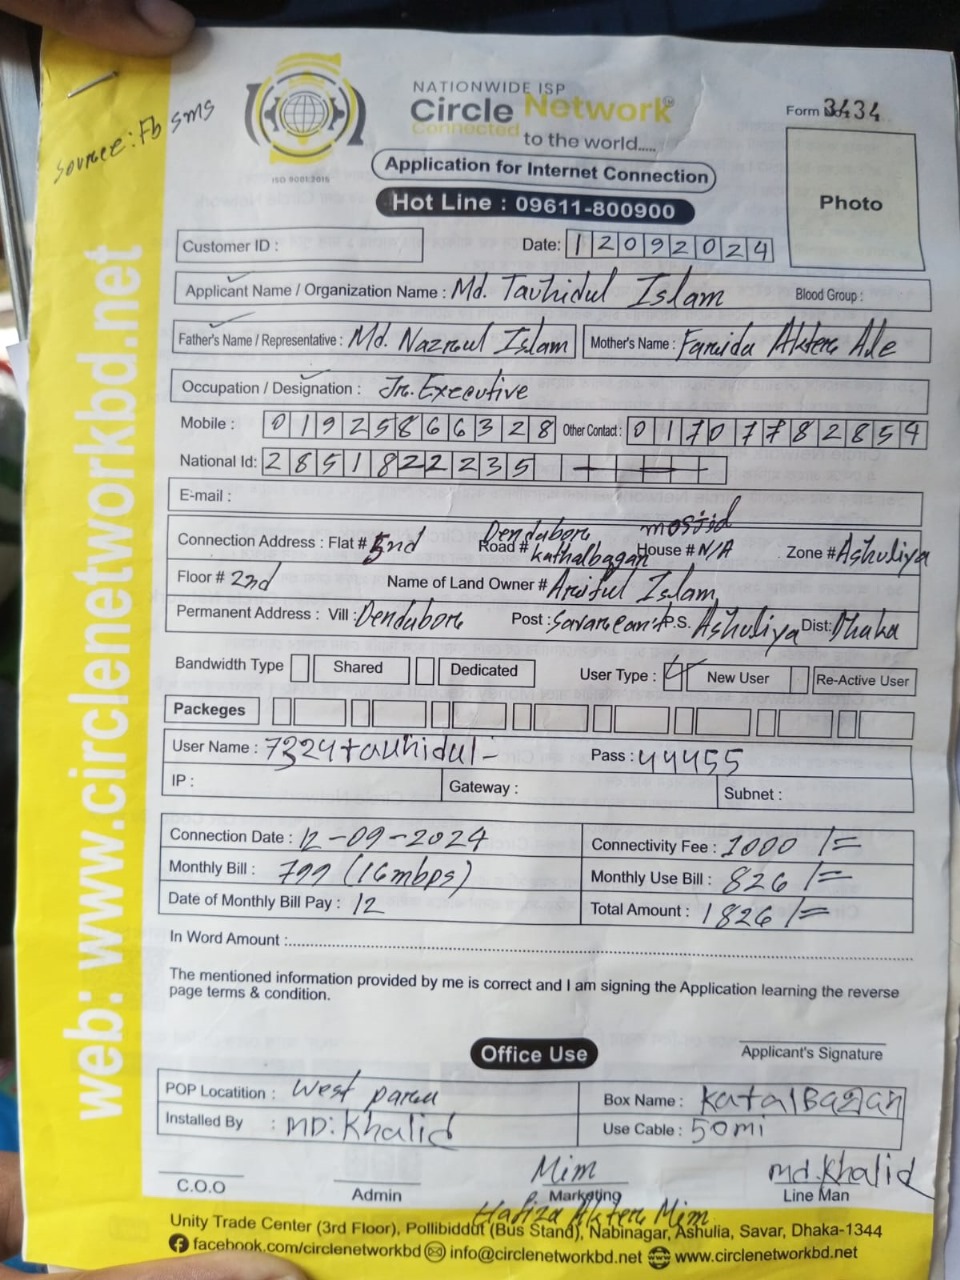 Source: Fb sms
NATIONWIDE ISP
Circle Network
Connected to the world.....
ISO 9001:2015
Form 3434
Application for Internet Connection
Hot Line : 09611-800900
Photo
Customer ID :
Date: 12092024
Applicant Name / Organization Name : Md. Tauhidul Islam
Blood Group :
Father's Name / Representative : Md. Nazrul Islam
Mother's Name : Farida Akter
Occupation / Designation : Jr. Executive
Mobile : 01925866328 Other Contact : 01707782854
National Id: 2851822235
E-mail :
Connection Address : Flat # 2nd Road # Dendabore kathalbagan mosjid House # N/A Zone # Ashuliya
Floor # 2nd Name of Land Owner # Ariful Islam
Permanent Address : Vill : Dendabore Post : Savar cant P.S. Ashuliya Dist: Dhaka
Bandwidth Type Shared Dedicated User Type : New User Re-Active User
Packeges
User Name : 7324tauhidul- Pass : 44455
IP : Gateway : Subnet :
Connection Date : 12-09-2024 Connectivity Fee : 1000/=
Monthly Bill : 799 (16mbps) Monthly Use Bill : 826/=
Date of Monthly Bill Pay : 12 Total Amount : 1826/=
In Word Amount :
The mentioned information provided by me is correct and I am signing the Application learning the reverse
page terms & condition.
Office Use
Applicant's Signature
POP Locatition : West para Box Name : KatalBagan
Installed By : MD: Khalid Use Cable : 50mi
Mim md. Khalid
C.O.O Admin Marketing Line Man
Hafiza Akter Mim
Unity Trade Center (3rd Floor), Pollibiddut (Bus Stand), Nabinagar, Ashulia, Savar, Dhaka-1344
facebook.com/circlenetworkbd info@circlenetworkbd.net www.circlenetworkbd.net
web: www.circlenetworkbd.net